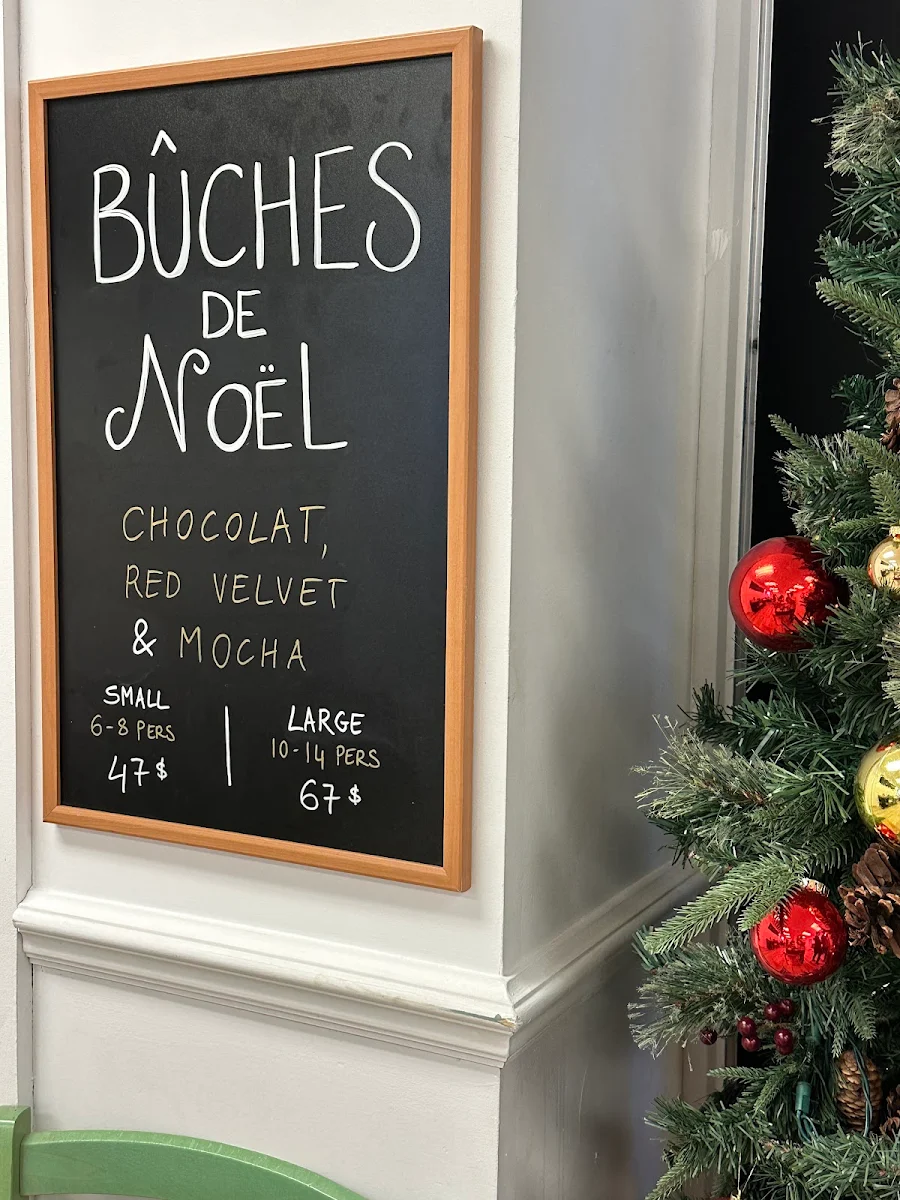 BÛCHES
DE
NOËL
CHOCOLAT,
RED VELVET
& MOCHA
SMALL
6-8 PERS
47$
LARGE
10-14 PERS
67$